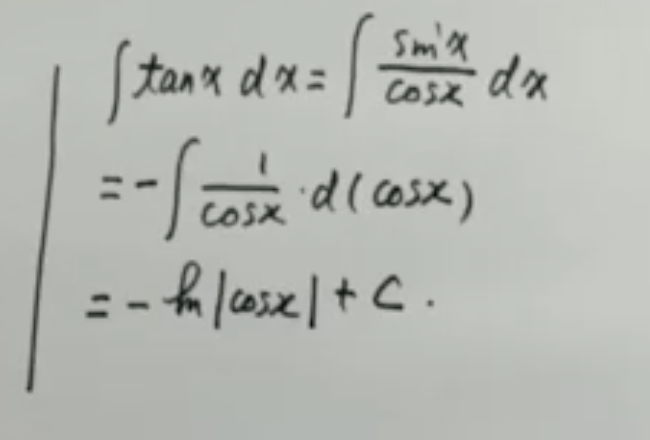 ∫ tanx dx = ∫ sinx/cosx dx
= - ∫ 1/cosx · d(cosx)
= - ln|cosx| + C .